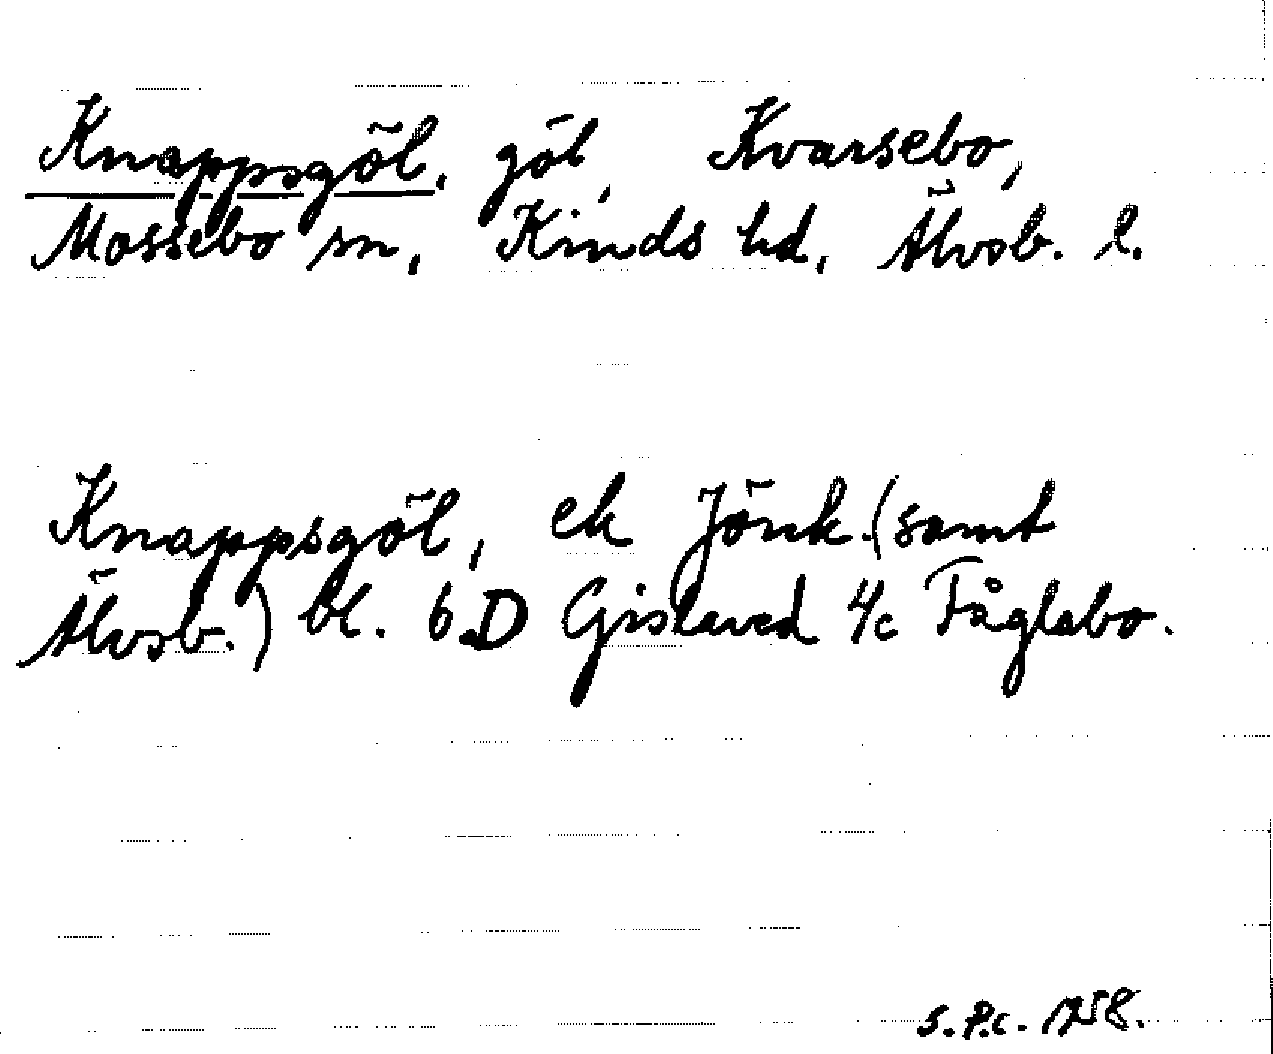 Knappsgöl, göl, Kvarsebo,
Mossebo sn, Kinds hd, Älvsb. l.
Knappsgöl, ek Jönk. (samt
Älvsb.) bl. 6.D Gislaved 4c Fåglabo.
S.P.C. 1958.